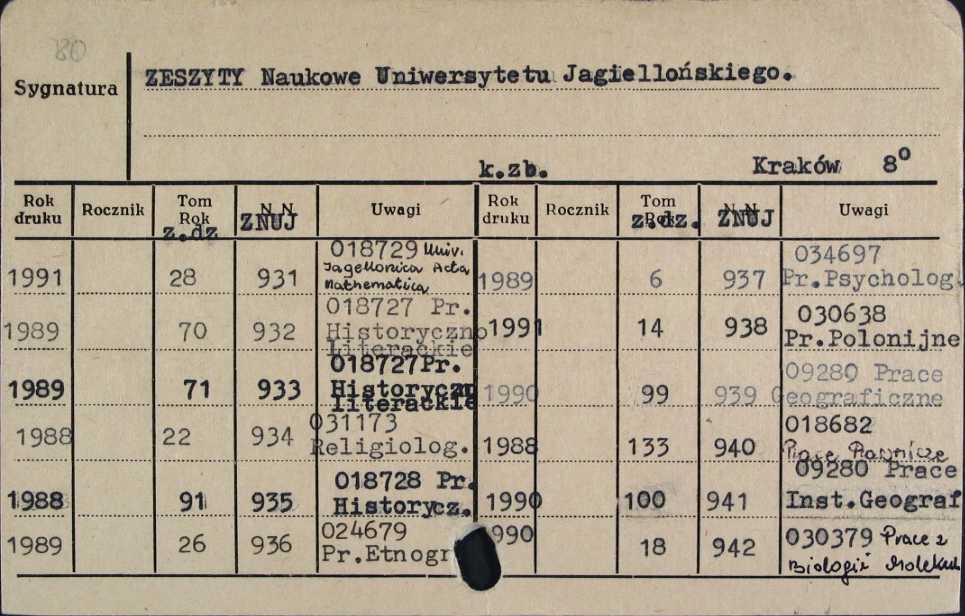 80
Sygnatura
ZESZYTY Naukowe Uniwersytetu Jagiellońskiego.
k.zb. Kraków 8°
Rok druku Rocznik Tom Rok z.dz N.N. ZNUJ Uwagi Rok druku Rocznik Tom Rok z.dz. N.N. ZNUJ Uwagi
1991 28 931 018729 Univ. Jagellonica Acta Mathematica 1989 6 937 034697 Pr.Psycholog.
1989 70 932 018727 Pr. Historyczno Literackie 1991 14 938 030638 Pr.Polonijne
1989 71 933 018727 Pr. Historyczno literackie 1990 99 939 09280 Prace Geograficzne
1988 22 934 031173 Religiolog. 1988 133 940 018682 Prace Prawnicze
1988 91 935 018728 Pr. Historycz. 1990 100 941 09280 Prace Inst.Geograf
1989 26 936 024679 Pr.Etnogr 1990 18 942 030379 Prace z Biologii Molekul